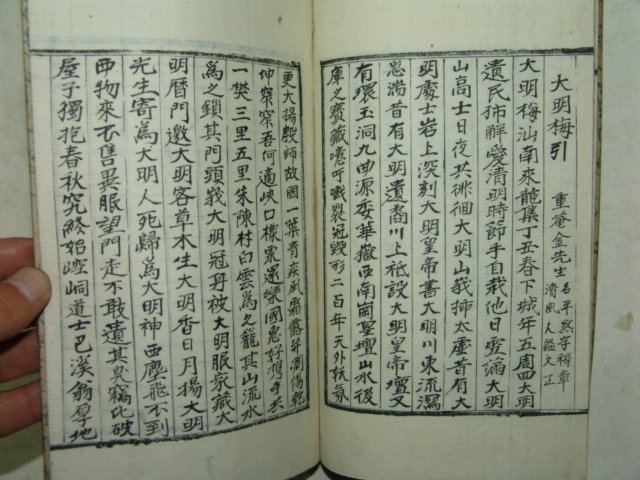 大明梅引
重菴金先生 名平默字穉章
清風人謚文正
大明梅汕南來龍集丁丑春下城年五周四大明
遺民柿觧愛清明時節手自栽他日雪滿大明
山高士日夜共徘徊大明山義揷太虛昔有大
明處士岩上深刻大明皇帝書大明川東流瀉
崽湍昔有大明遺裔川上祗設大明皇帝壇又
有環玉洞九曲源委華嶽西南崗皇壇山水後
庫之寶藏噫吁嚱裂冠毁形二百年天外妖氛
更大揚殷師故國一葉青疾風霜露年凋傷乾
坤窄窄吾何適峽口機栗還樂國惠好
一樊三里五里朱陳村白雲爲之籠其山流水
爲之鎖其門頭戴大明冠身被大明服家藏大
明曆門邀大明客草木生大明香日月揚大明
先生寄爲大明人死歸爲大明神西塵飛不到
西物來不售異服望門走不敢遺其臭竊比破
屋子獨抱春秋究終始崆峒道士巴溪翁厚地